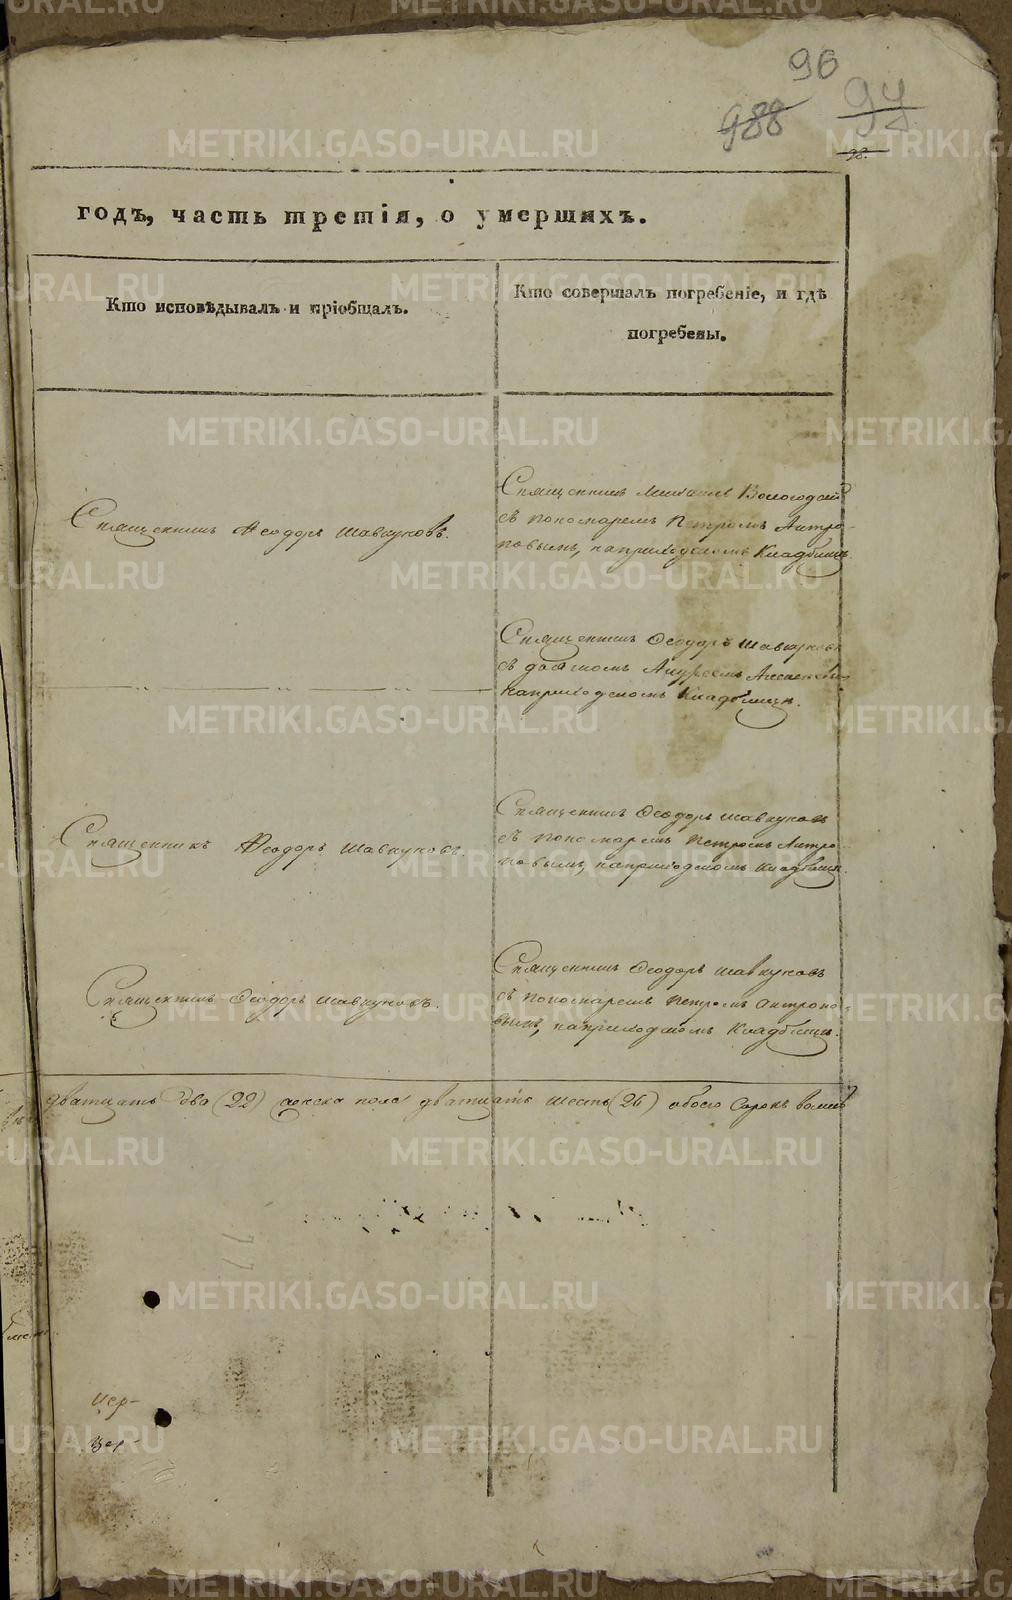 96
988 97
98.
годъ, часть третія, о умершихъ.
Кто исповѣдывалъ и пріобщалъ.
Кто совершалъ погребеніе, и гдѣ
погребены.
Священникъ Ѳеодоръ Шавкуновъ.
Священникъ Михаилъ Вологодскій
съ пономаремъ Петромъ Антро-
повымъ, на приходскомъ Кладбищѣ.
Священникъ Ѳеодоръ Шавкуновъ
съ дьячкомъ Андреемъ
на приходскомъ Кладбищѣ.
Священникъ Ѳеодоръ Шавкуновъ.
Священникъ Ѳеодоръ Шавкуновъ
съ пономаремъ Петромъ Антро-
повымъ, на приходскомъ кладбищѣ.
Священникъ Ѳеодоръ Шавкуновъ.
Священникъ Ѳеодоръ Шавкуновъ
съ пономаремъ Петромъ Антропо-
вымъ, на приходскомъ Кладбищѣ.
дватцать два (22) женска пола дватцать шесть (26) обоего Сорокъ
Цер-
METRIKI.GASO-URAL.RU